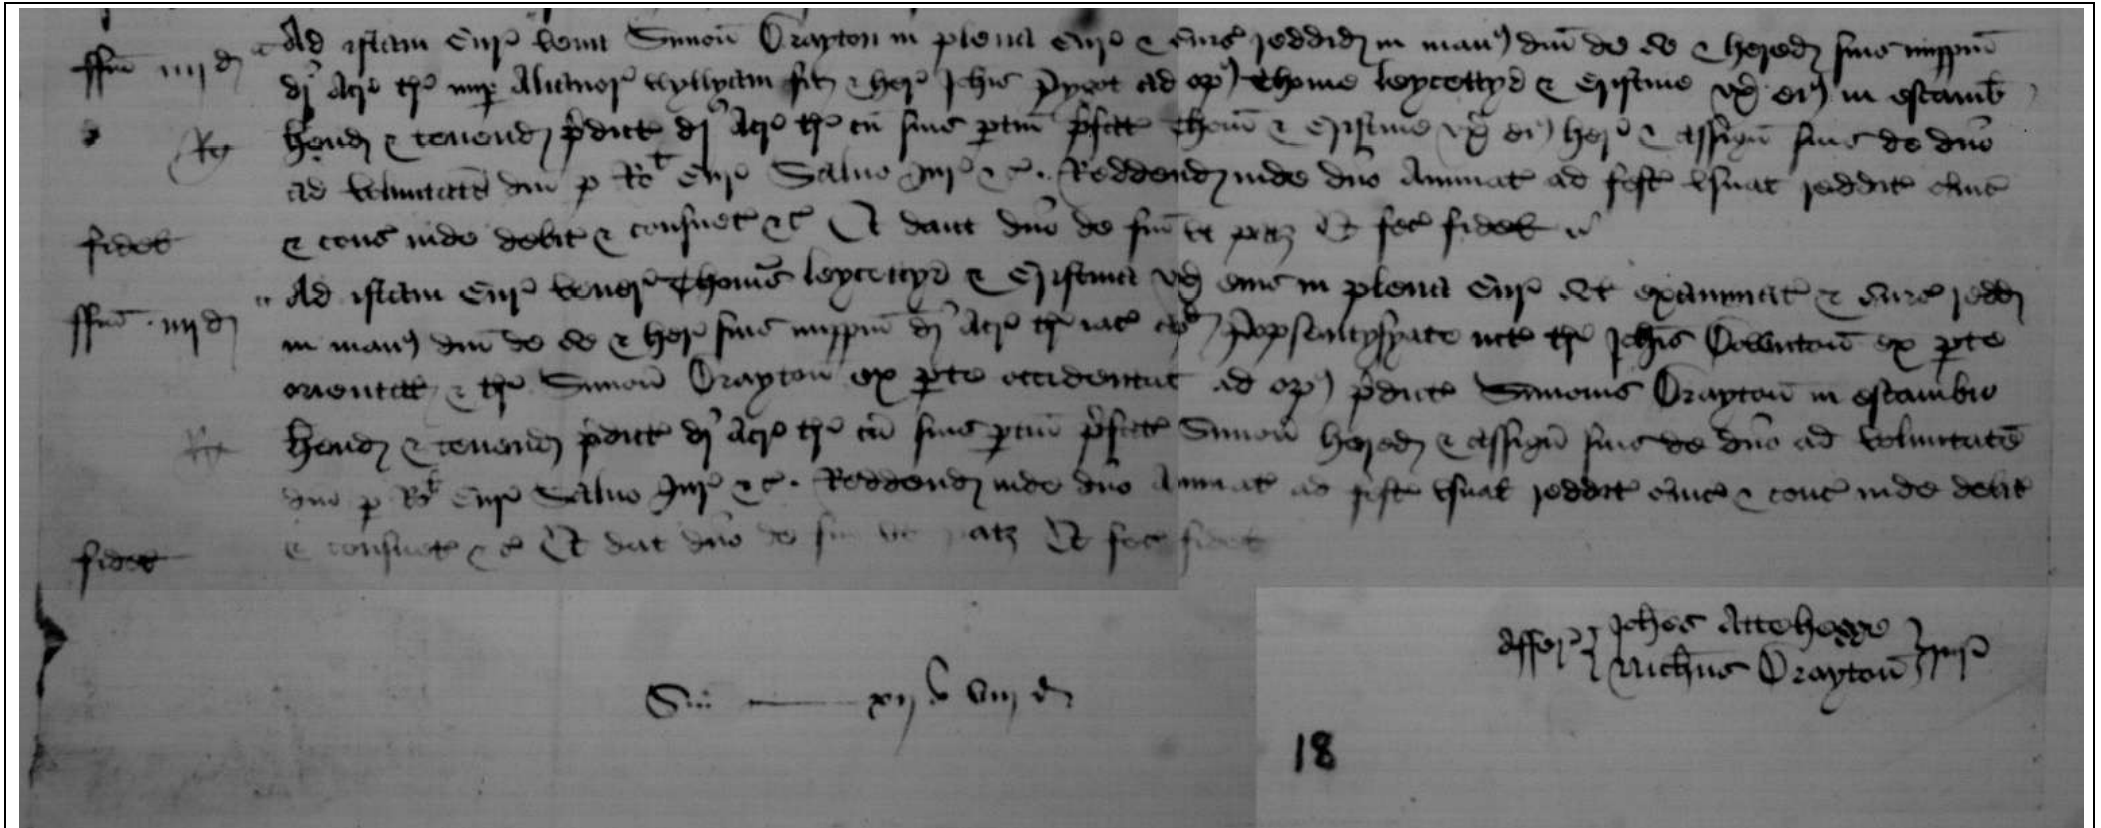 ffin iiij d Ad istam Cur venit Simon Drayton in plena Cur & Curs reddid in man dni de se & hered suis imppm
di Acr tr nup Alianor Wyllyam fil & her Johis Pygot ad op Thome Leycettyr & Cristine ux ei in escamb
Hend & tenend pdict di Acr tr cu suis ptin pfat Thom & Cristine ux ei her & assign suis de dno
ad voluntate dni p Rot Cur Salvo Jur &c. Reddend inde dno Annuat ad fest usual reddit
fidel & cons inde debit & consuet &c Et dant dno de fin ut patz Et fec fidel
ffin iiij d Ad istam Cur vener Thomas Leycettyr & Cristina ux eius in plena Cur Et examinat & redd
in man dni de se & her suis imppm di Acr tr iac iuxt tr Johis ex pte
oriental & tr Simon Drayton ex pte occidental ad op pdict Simonis Drayton in escambio
Hend & tenend pdict di Acr tr cu suis ptin pfat Simon hered & assign suis de dno ad voluntate
dno p Rot Cur Salvo Jur &c. Reddend inde dno Annuat ad fest usual reddit & inde debit
fidel & consuet &c Et dat dno de fin ut patz Et fec fidel
Affer { Johes Attehegge
Nichus Drayton } Jur
Sm xij s viij d
18